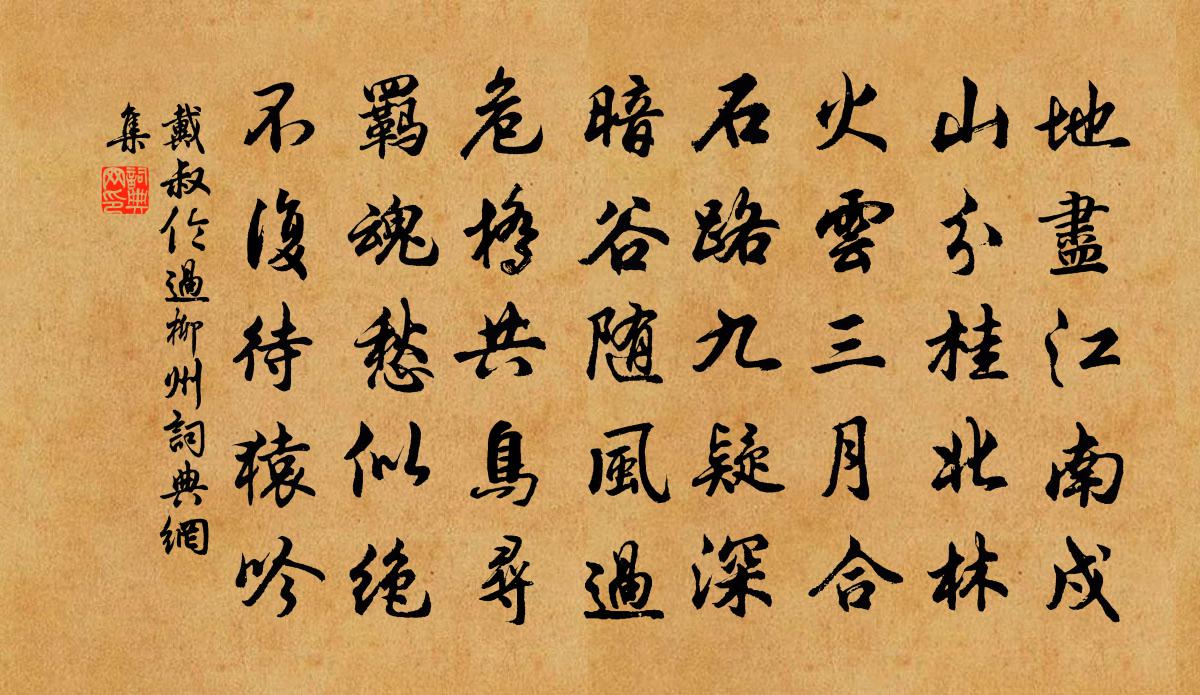 地盡江南戍
山分桂北林
火雲三月合
石路九疑深
暗谷随風過
危橋共鳥尋
羈魂愁似绝
不復待猿吟
戴叔伦過柳州詞典網
集
詞典網印